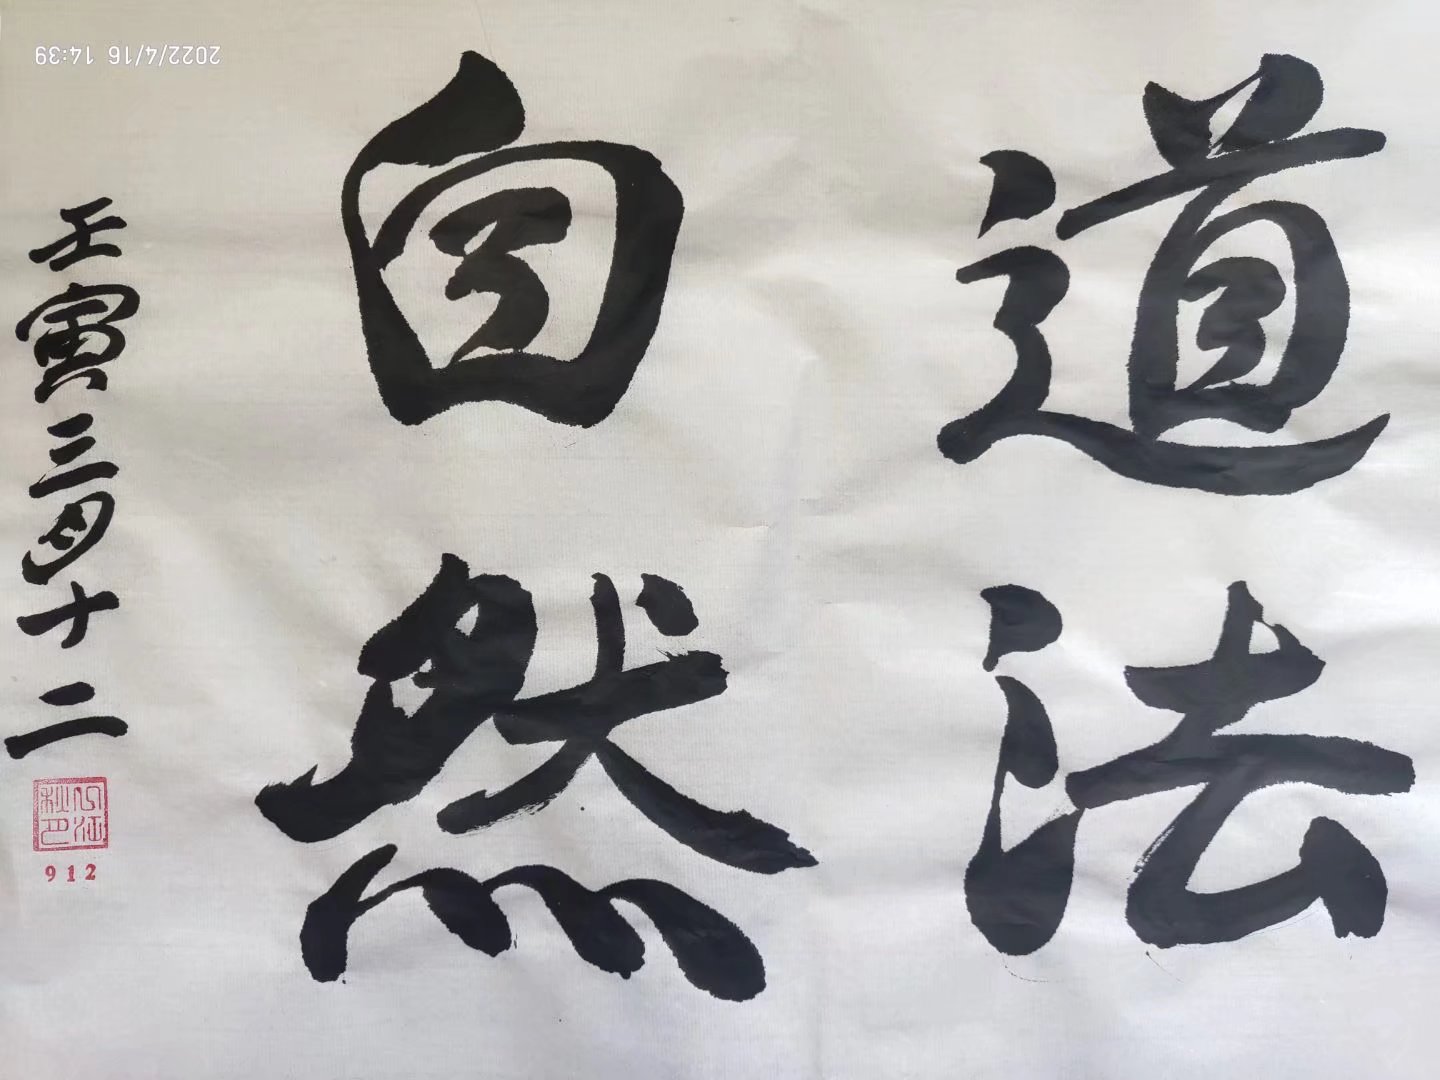 道法
自然
壬寅三月十二
912
2022/4/16 14:39